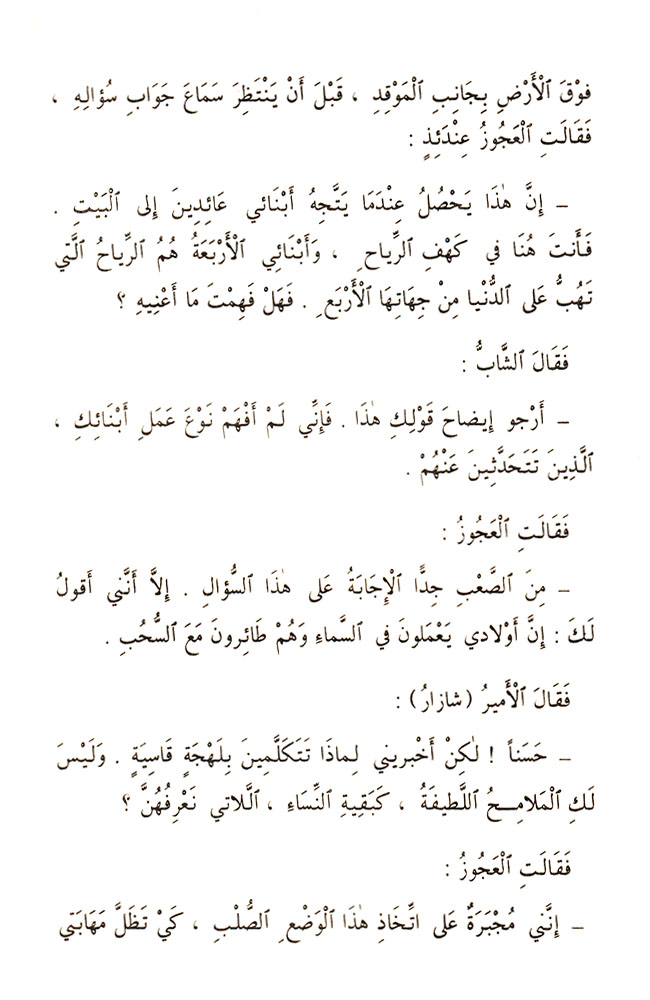 فوْقَ ٱلْأَرْضِ بِجَانِبِ ٱلْمَوْقِدِ ، قَبْلَ أَنْ يَنْتَظِرَ سَمَاعَ جَوَابِ سُؤَالِهِ ،
فَقَالَتِ ٱلْعَجُوزُ عِنْدَئِذٍ :
– إِنَّ هٰذَا يَحْصُلُ عِنْدَمَا يَتَّجِهُ أَبْنَائي عَائِدِينَ إِلى ٱلْبَيْتِ .
فَأَنتَ هُنَا في كَهْفِ ٱلرِّياحِ ، وَأَبْنَائِي ٱلْأَرْبَعَةُ هُمُ ٱلرِّياحُ ٱلَّتي
تَهُبُّ عَلى ٱلدُّنْيا مِنْ جِهَاتِهَا ٱلْأَرْبَعِ . فَهَلْ فَهِمْتَ مَا أَعْنِيهِ ؟
فَقَالَ ٱلشَّابُّ :
– أَرْجو إِيضاحَ قَوْلِكِ هٰذَا . فَإِنِّي لَمْ أَفْهَمْ نَوْعَ عَمَلِ أَبْنَائِكِ ،
ٱلَّذِينَ تَتَحَدَّثِينَ عَنْهُمْ .
فَقَالَتِ ٱلْعَجُوزُ :
– مِنَ ٱلصَّعْبِ جِدًّا ٱلْإِجَابَةُ عَلى هٰذَا ٱلسُّؤالِ . إِلاَّ أَنَّني أَقولُ
لَكَ : إِنَّ أَوْلادي يَعْمَلونَ في ٱلسَّماءِ وَهُمْ طَائِرونَ مَعَ ٱلسُّحُبِ .
فَقَالَ ٱلْأَميرُ (شازارُ) :
– حَسَناً ! لٰكِنْ أَخْبريني لِماذَا تَتَكَلَّمِينَ بِلَهْجَةٍ قَاسِيَةٍ . وَلَيْسَ
لَكِ ٱلْمَلامِـحُ ٱللَّطيفَةُ ، كَبَقِيةِ ٱلنِّسَاءِ ، ٱللاَّتي نَعْرِفُهُنَّ ؟
فَقَالَتِ ٱلْعَجُوزُ :
– إِنَّني مُجْبَرَةٌ عَلى اتِّخَاذِ هٰذَا ٱلْوَضْعِ ٱلصُّلْبِ ، كَيْ تَظَلَّ مَهَابَتي